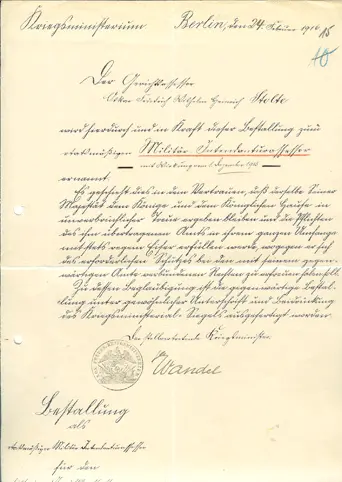 Kriegsministerium
Berlin, den 24. Februar 1916
15
10
Der Gerichtsassessor
Oskar Friedrich Wilhelm Heinrich Stolte
wird hierdurch und in Kraft dieser Bestallung zum
etatsmäßigen Militär-Intendanturassessor
mit Wirkung vom 1. Dezember 1915
ernannt.
Es geschieht dies in dem Vertrauen, daß derselbe Seiner
Majestät dem Könige und dem Königlichen Hause in
unverbrüchlicher Treue ergeben bleiben und die Pflichten
des ihm übertragenen Amts in ihrem ganzen Umfange
mit stets regem Eifer erfüllen werde, wogegen er sich
des erforderlichen Schutzes bei den mit seinem gegen-
wärtigen Amte verbundenen Rechten zu erfreuen haben soll.
Zu dessen Beglaubigung ist die gegenwärtige Bestal-
lung unter gewöhnlicher Unterschrift und Beidrückung
des Kriegsministerial-Siegels ausgefertigt worden.
Der stellvertretende Kriegsminister
Wandel
Bestallung
als
etatsmäßiger Militär-Intendanturassessor
für den